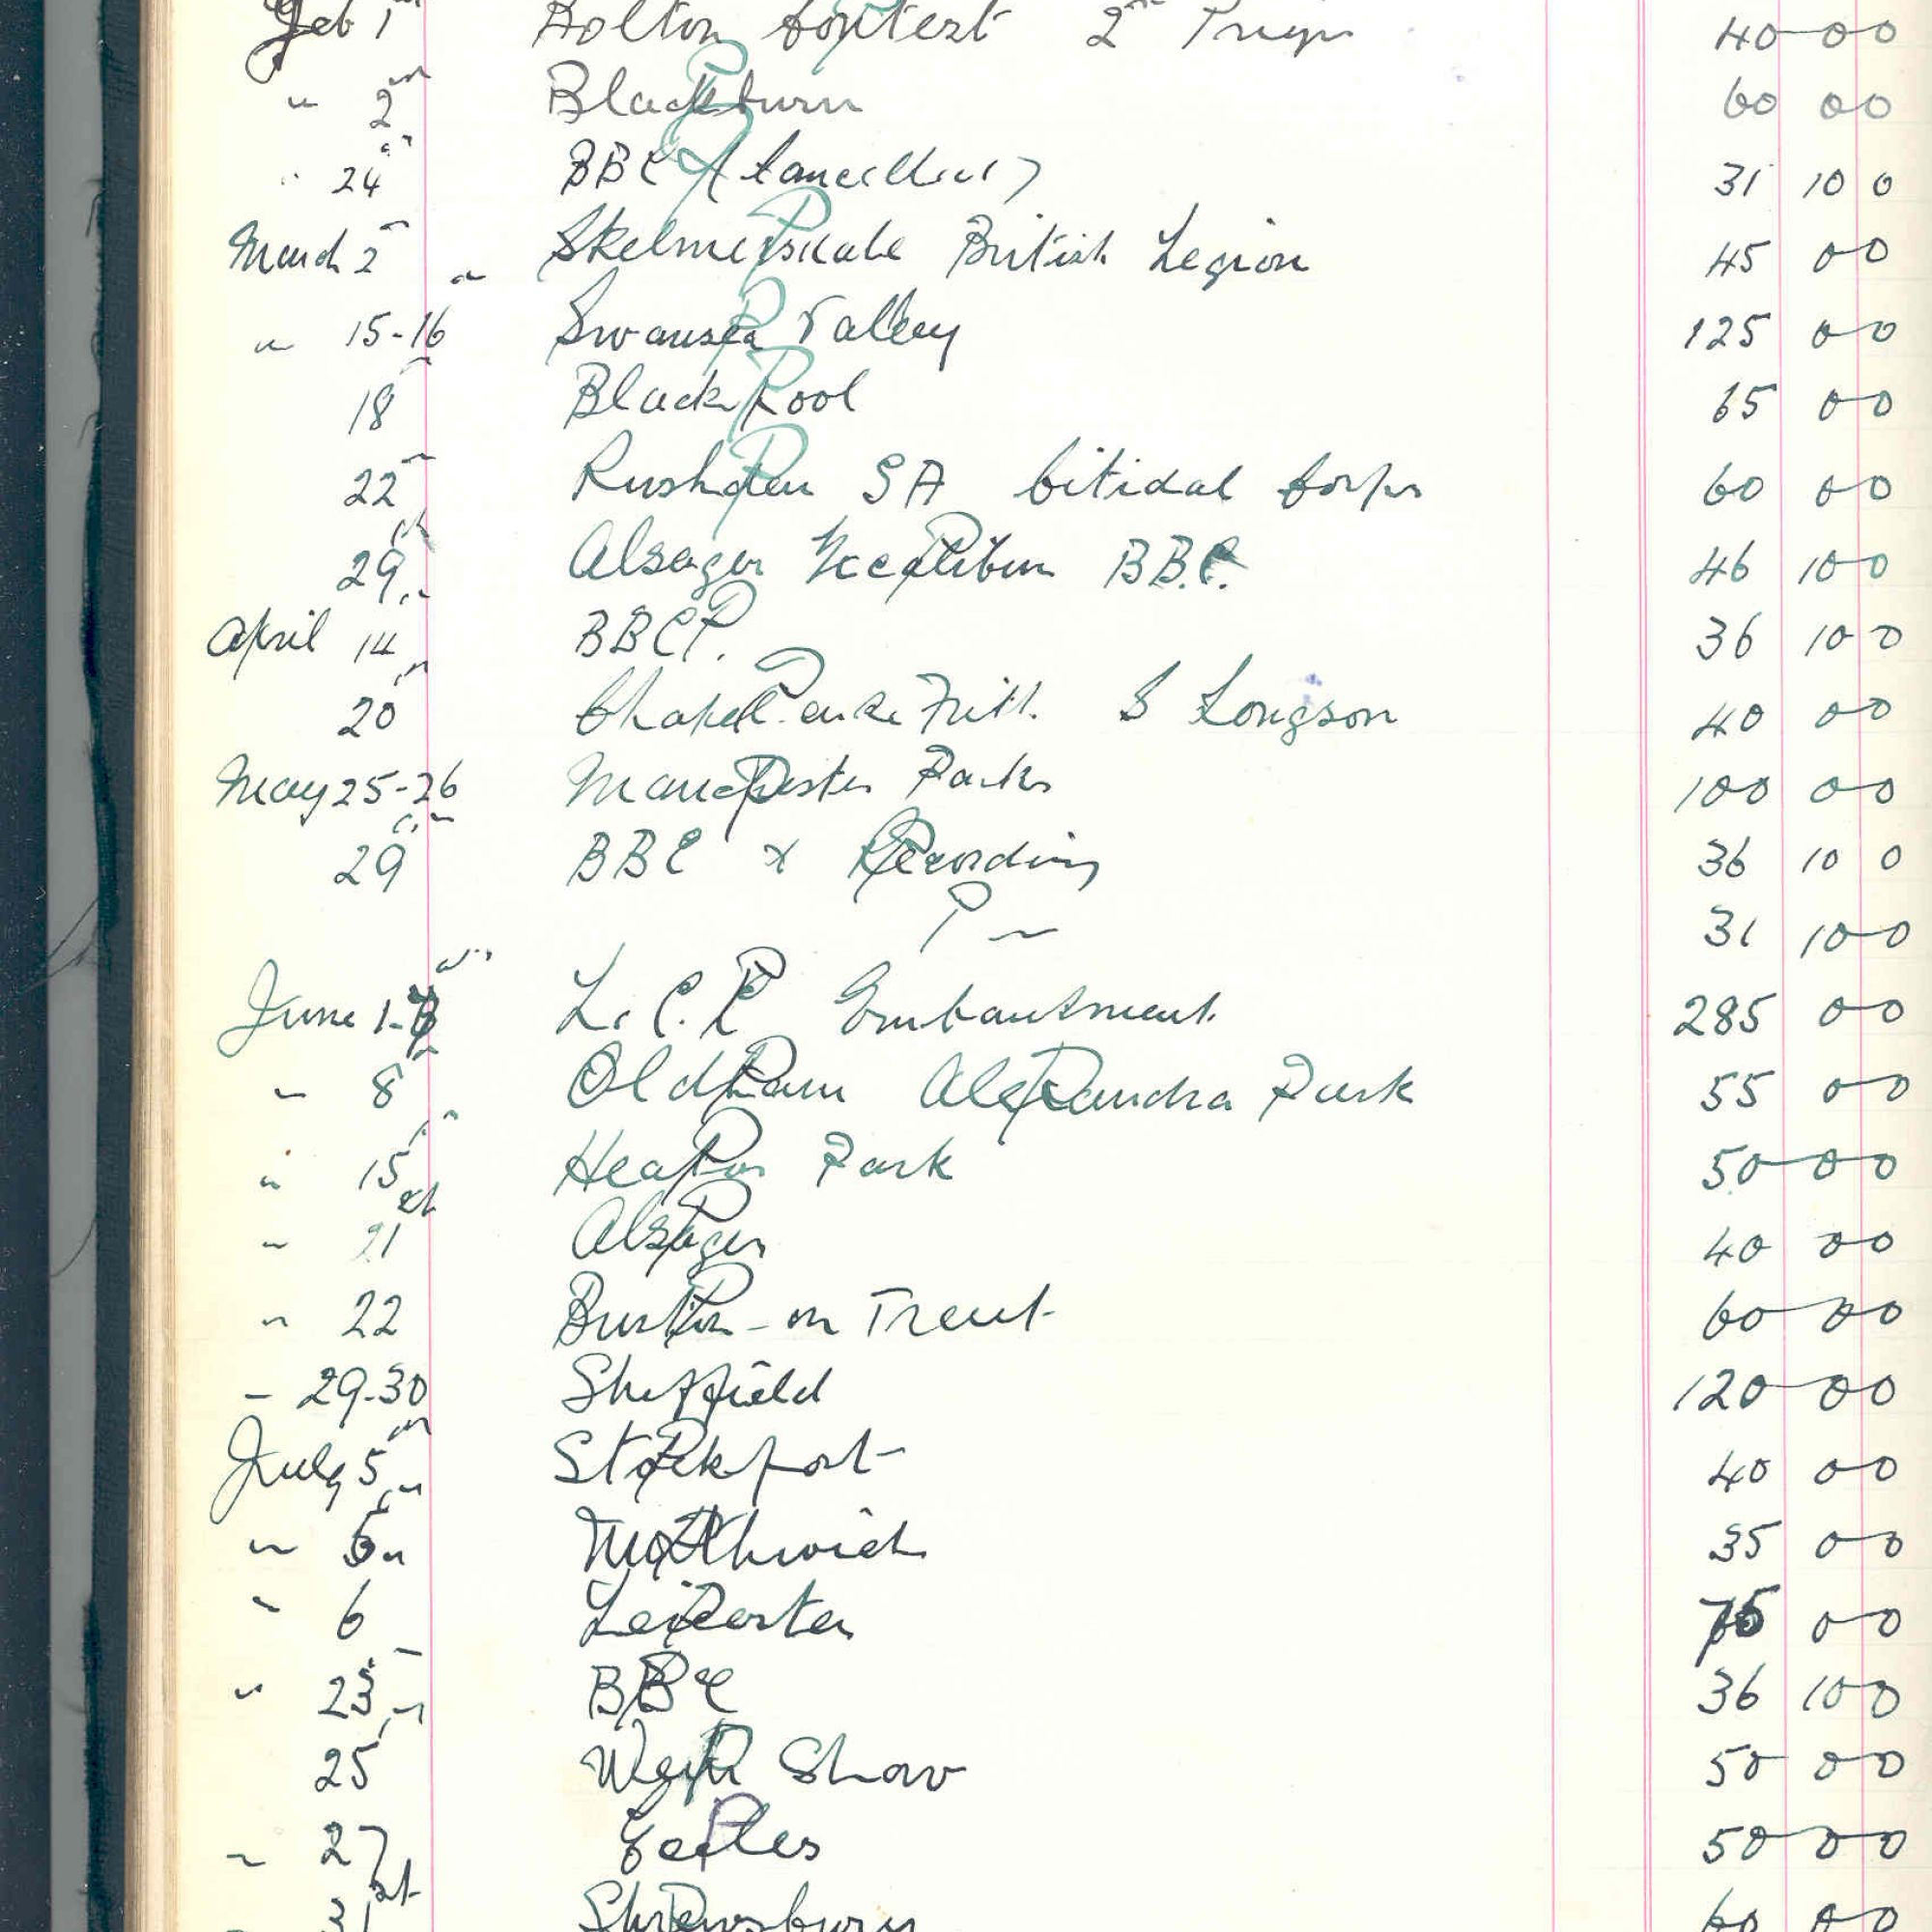 Feb 1st Bolton Contest 2nd Prize 40 0 0
" 2nd Blackburn 60 0 0
" 24th BBC (Cancelled) 31 10 0
March 2nd Skelmersdale British Legion 45 0 0
" 15-16th Swansea Valley 125 0 0
18th Blackpool 65 0 0
22nd Rushden SA Citidal Corps 60 0 0
29th Alsager Excelibur BBC. 46 10 0
April 14th BBC P. 36 10 0
20th Chapel-en-le-Frith. S Longson 40 0 0
May 25-26 Manchester Parks 100 0 0
29th BBC + Recording 36 10 0
P " 31 10 0
June 1- L.C.C Embankment. 285 0 0
" 8th Oldham Alexandra Park 55 0 0
" 15th Heaton Park 50 0 0
" 21st Alsager 40 0 0
" 22 Burton-on Trent 60 0 0
" 29-30 Sheffield 120 0 0
July 5th Stockport 40 0 0
" Northwich 35 0 0
" 6 Leicester 75 0 0
" 23rd BBC 36 10 0
25th Show 50 0 0
" 27th Eccles 50 0 0
" 31st Shrewsbury 60 0 0